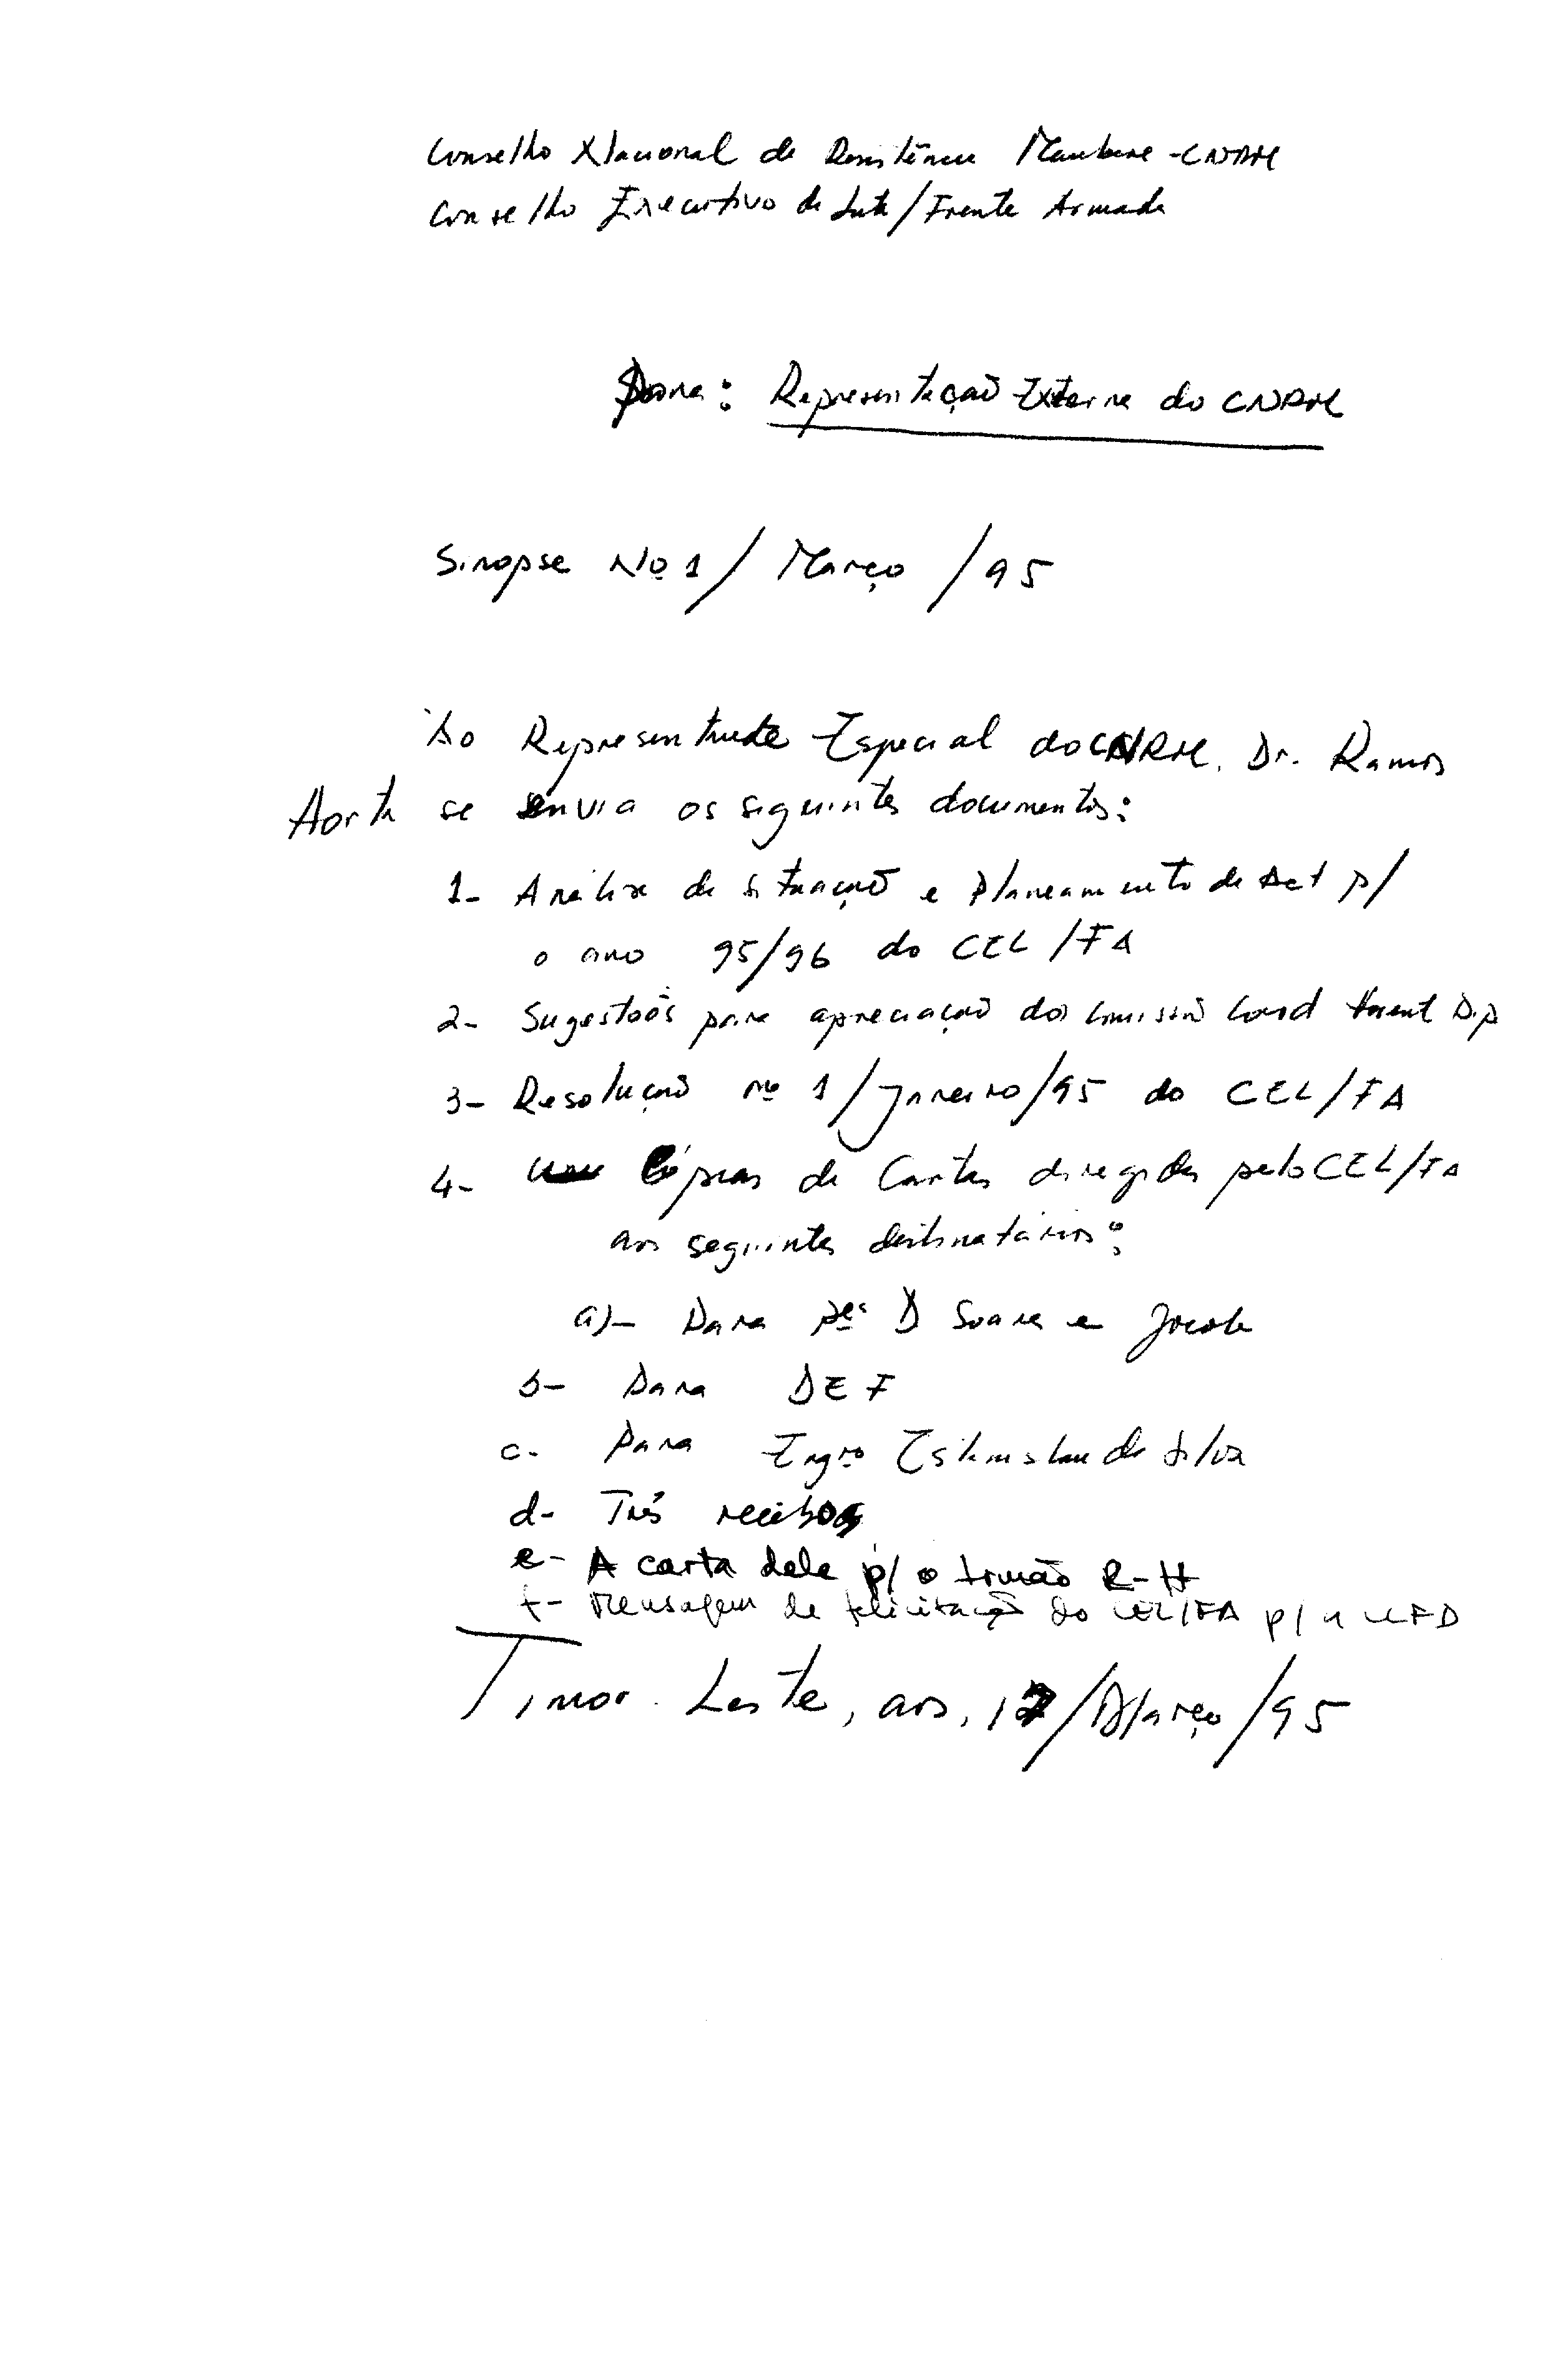 Conselho Nacional de Resistência Maubere - CNRM
Conselho Executivo da Luta/Frente Armada
Para: Representação Externa do CNRM
Sinopse No 1/ Março /95
Ao Representante Especial do CNRM. Dr. Ramos
Horta se envia os seguintes documentos:
1- Análise da Situação e Planeamento de Act p/
o ano 95/96 do CEL/FA
2- Sugestoẽs para apreciação da Comissão Coord Dip
3- Resolução no 1/Janeiro/95 do CEL/FA
4- Cópias de Cartas diregidas pelo CEL/FA
aos seguintes destinatários:
a)- Para pes D Soares e Jacob
b- Para DEF
c. Para Engro Estanislau da Silva
d- Três recibos
e- A carta dele p/ o Irmão R-H
f- Mensagem de felicitação do CEL/FA p/ a
Timor. Leste, aos, 17/Março/95